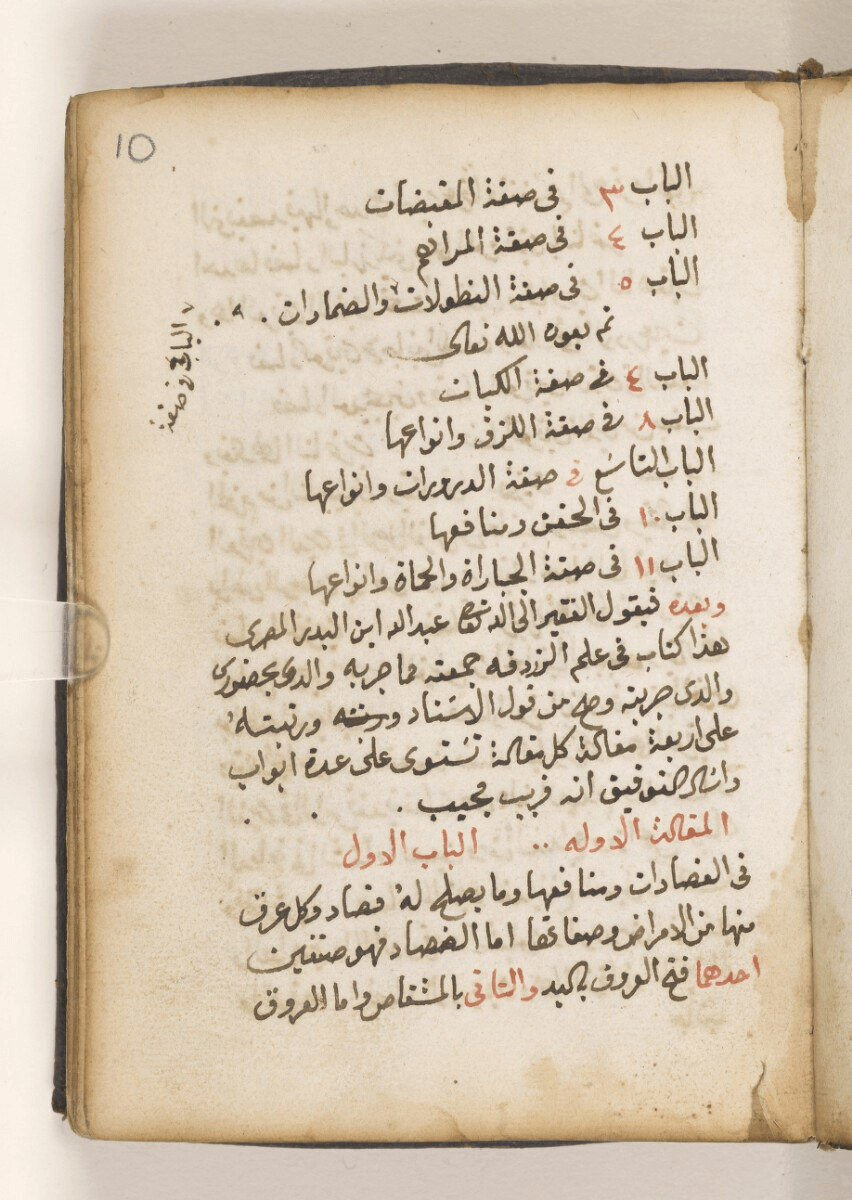 10
الباب ٣ فى صفة المقبضات
الباب ٤ فى صفة المراهم
الباب ٥ فى صفة النطولات والضمادات
تم بعون الله تعالى
الباب ٤ فى صفة الكيات
الباب ٨ فى صفة اللزق وانواعها
الباب التاسع فى صفة الدرورات وانواعها
الباب ١٠ فى الحقن ومنافعها
الباب ١١ فى صفة الجباراة والحماة وانواعها
وبعده فيقول الفقير الى الله تعالى عبد الله ابن البدر المصرى
هذا كتاب فى علم الزردفه جمعته مما جربه والدى بحضورى
والدى جربته وصح من قول الاستاد ورتبته
على اربعة مقالة كل مقالة تستوى على عدة ابواب
واسال التوفيق انه قريب مجيب
المقالة الاوله الباب الاول
فى الفصادات ومنافعها وما يصلح له فصاد وكل عرق
منها من الامراض وصفاتها اما الفصاد فهو صنفين
احدهما فتح العروق باليد والتانى بالمشقاص واما العروق
الباب فى صفة